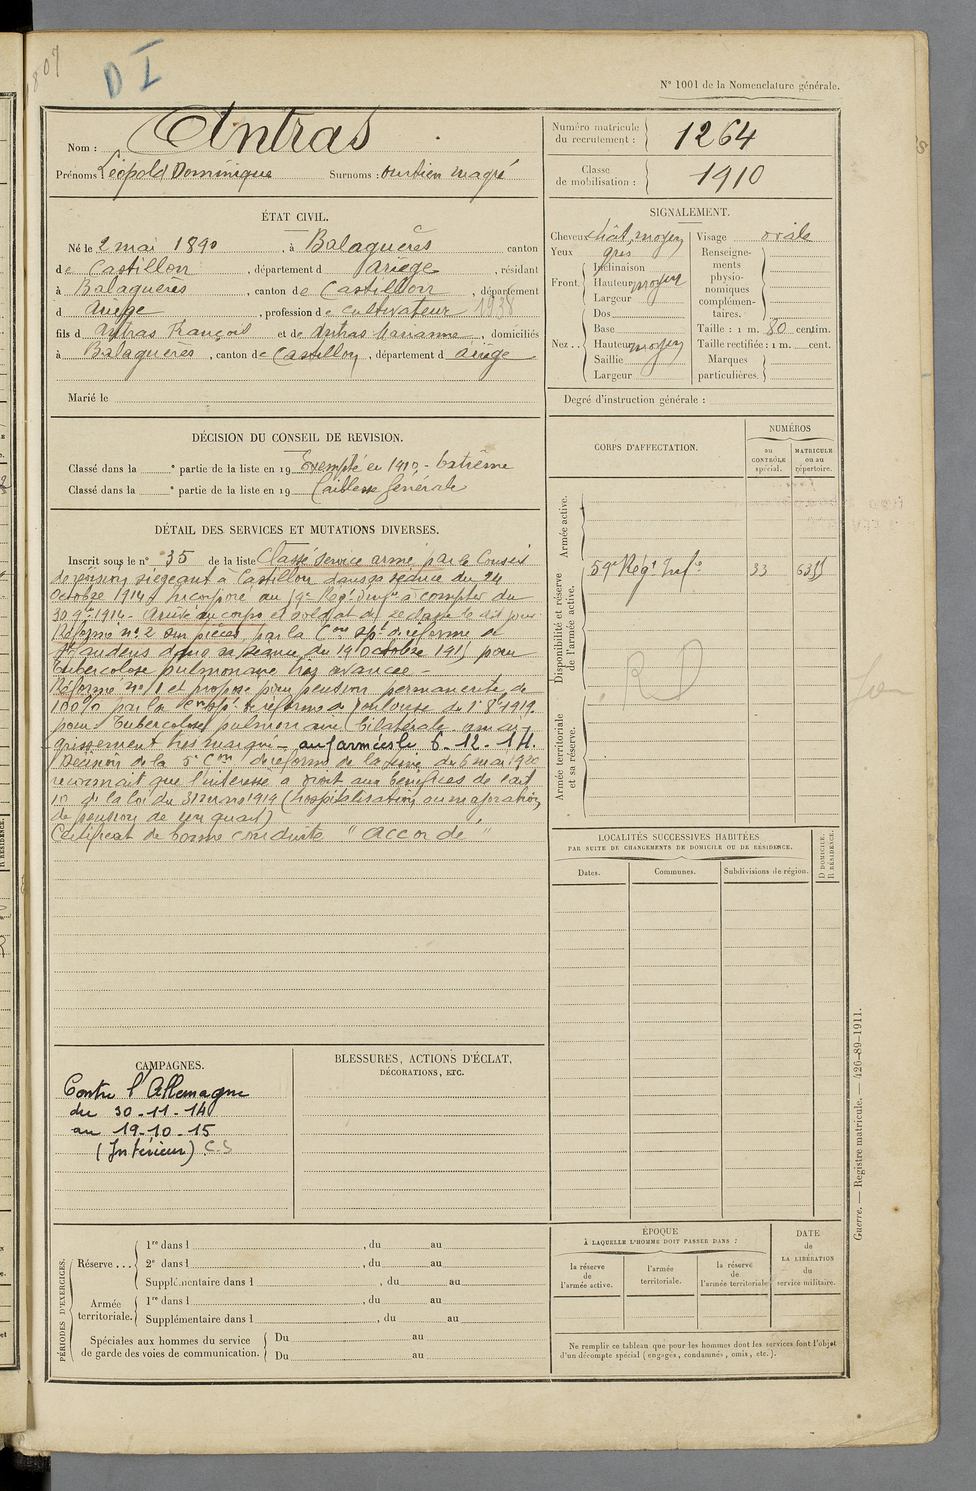 807
D I
N° 1001 de la Nomenclature générale.
Nom : Antras
Prénoms : Léopold Dominique Surnoms :
Numéro matricule du recrutement : 1264
Classe de mobilisation : 1910
ÉTAT CIVIL.
Né le 2 mai 1890, à Balaguères canton
de Castillon, département d Ariège, résidant
à Balaguères, canton de Castillon, département
d Ariège, profession de cultivateur 1938
fils d Antras François et de Antras Marianne, domiciliés
à Balaguères, canton de Castillon, département d Ariège
Marié le
SIGNALEMENT.
Cheveux chât. moyen Visage ovale
Yeux gris
Front. Inclinaison
Hauteur moyen
Largeur
Nez.. Dos
Base
Hauteur moyen
Saillie
Largeur
Renseignements physionomiques complémentaires.
Taille : 1 m. 80 centim.
Taille rectifiée : 1 m. cent.
Marques particulières.
Degré d'instruction générale :
DÉCISION DU CONSEIL DE REVISION.
Classé dans la e partie de la liste en 19 Exempté en 1910 - extrême
Classé dans la e partie de la liste en 19 faiblesse générale
DÉTAIL DES SERVICES ET MUTATIONS DIVERSES.
Inscrit sous le n° 35 de la liste Classé service armé par le Conseil
de révision siégeant à Castillon dans sa séance du 24
Octobre 1914. Incorporé au 59e Rég. d'Inf. à compter du
30 9bre 1914. Arrivé au corps et soldat de 2e classe le dit jour
Réformé n° 2 sur pièces, par la Con sple de réforme de
St Gaudens dans sa séance du 19 Octobre 1915 pour
tuberculose pulmonaire très avancée -
Réformé n° 1 et proposé pour pension permanente de
100% par la Con spé. de réforme de Toulouse du 1er 8bre 1919
pour tuberculose pulmonaire bilatérale, amaigrissement très marqué - aux armées le 6-12-14.
Décision de la 5e Con de réforme de la du 6 mai 1920
reconnait que l'intéressé a droit aux bénéfices de l'art
10 de la loi du 31 mars 1919 (hospitalisation ou majoration
de pension de un quart)
Certificat de bonne conduite "accordé"
CORPS D'AFFECTATION.
NUMÉROS
au CONTRÔLE spécial.
MATRICULE ou au répertoire.
Armée active.
Disponibilité et réserve de l'armée active.
59e Rég. Infie 33 6355
RD
Armée territoriale et sa réserve.
LOCALITÉS SUCCESSIVES HABITÉES
PAR SUITE DE CHANGEMENTS DE DOMICILE OU DE RÉSIDENCE.
Dates. Communes. Subdivisions de région.
D DOMICILE.
R RÉSIDENCE.
CAMPAGNES.
Contre l'Allemagne
du 30-11-14
au 19-10-15
(Intérieur) C.S
BLESSURES, ACTIONS D'ÉCLAT,
DÉCORATIONS, ETC.
PÉRIODES D'EXERCICES.
Réserve... 1re dans l , du au
2e dans l , du au
Supplémentaire dans l , du au
Armée territoriale. 1re dans l , du au
Supplémentaire dans l , du au
Spéciales aux hommes du service de garde des voies de communication.
Du au
Du au
ÉPOQUE
À LAQUELLE L'HOMME DOIT PASSER DANS :
la réserve de l'armée active.
l'armée territoriale.
la réserve de l'armée territoriale
DATE de LA LIBÉRATION du service militaire.
Ne remplir ce tableau que pour les hommes dont les services font l'objet
d'un décompte spécial (engagés, condamnés, omis, etc.).
Guerre. — Registre matricule. — 426-89-1911.